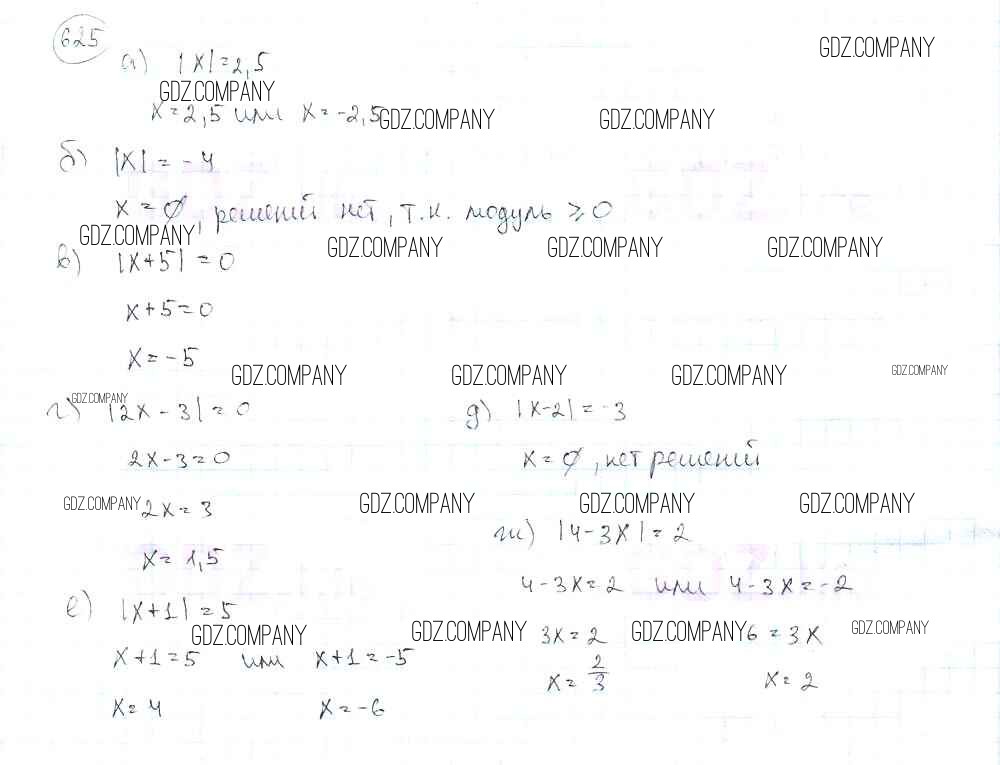 625
GDZ.COMPANY
а) |x| = 2,5
GDZ.COMPANY
x = 2,5 или x = -2,5
GDZ.COMPANY GDZ.COMPANY
б) |x| = -4
x = ∅, решений нет, т.к. модуль ≥ 0
GDZ.COMPANY GDZ.COMPANY GDZ.COMPANY GDZ.COMPANY
в) |x+5| = 0
x+5=0
x = -5
GDZ.COMPANY GDZ.COMPANY GDZ.COMPANY GDZ.COMPANY
GDZ.COMPANY
г) |2x - 3| = 0
2x-3=0
GDZ.COMPANY
2x = 3
x = 1,5
е) |x+1| = 5
GDZ.COMPANY
x+1=5 или x+1=-5
x=4 x=-6
д) |x-2| = -3
x = ∅, нет решений
GDZ.COMPANY GDZ.COMPANY GDZ.COMPANY
ж) |4-3x| = 2
4-3x=2 или 4-3x=-2
GDZ.COMPANY GDZ.COMPANY GDZ.COMPANY
3x=2 6=3x
x = 2/3 x = 2